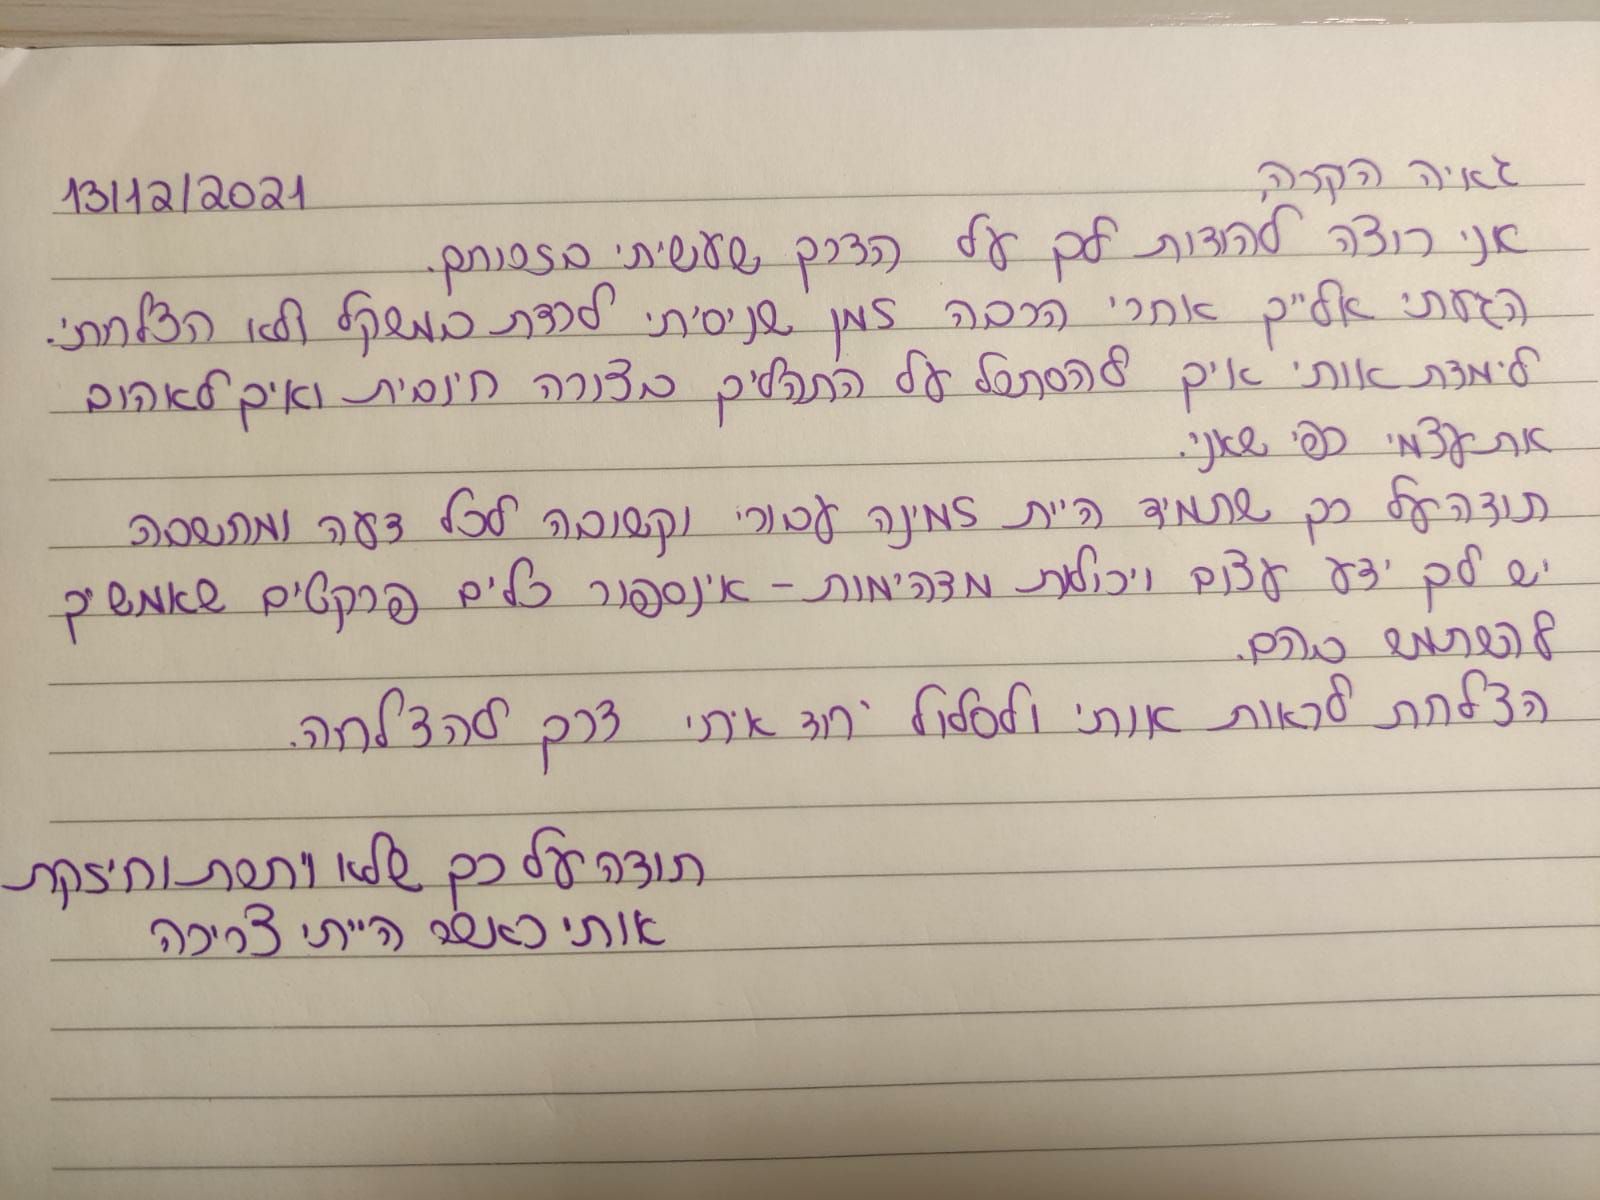 גאיה היקרה,
13/12/2021
אני רוצה להודות לך על הדרך שעשיתי בזכותך.
הגעתי אלייך אחרי הרבה זמן שניסיתי לרדת במשקל ולא הצלחתי.
לימדת אותי איך להסתכל על התהליך בצורה חיובית ואיך לאהוב
את עצמי כפי שאני.
תודה על כך שתמיד היית זמינה עבורי וקשובה לכל דעה ומחשבה
יש לך ידע עצום ויכולות מדהימות - אינספור כלים פרקטים שאמשיך
להשתמש בהם.
הצלחת לראות אותי ולסלול יחד איתי דרך להצלחה.
תודה על כך שלא ויתרת וחיזקת
אותי כאשר הייתי צריכה